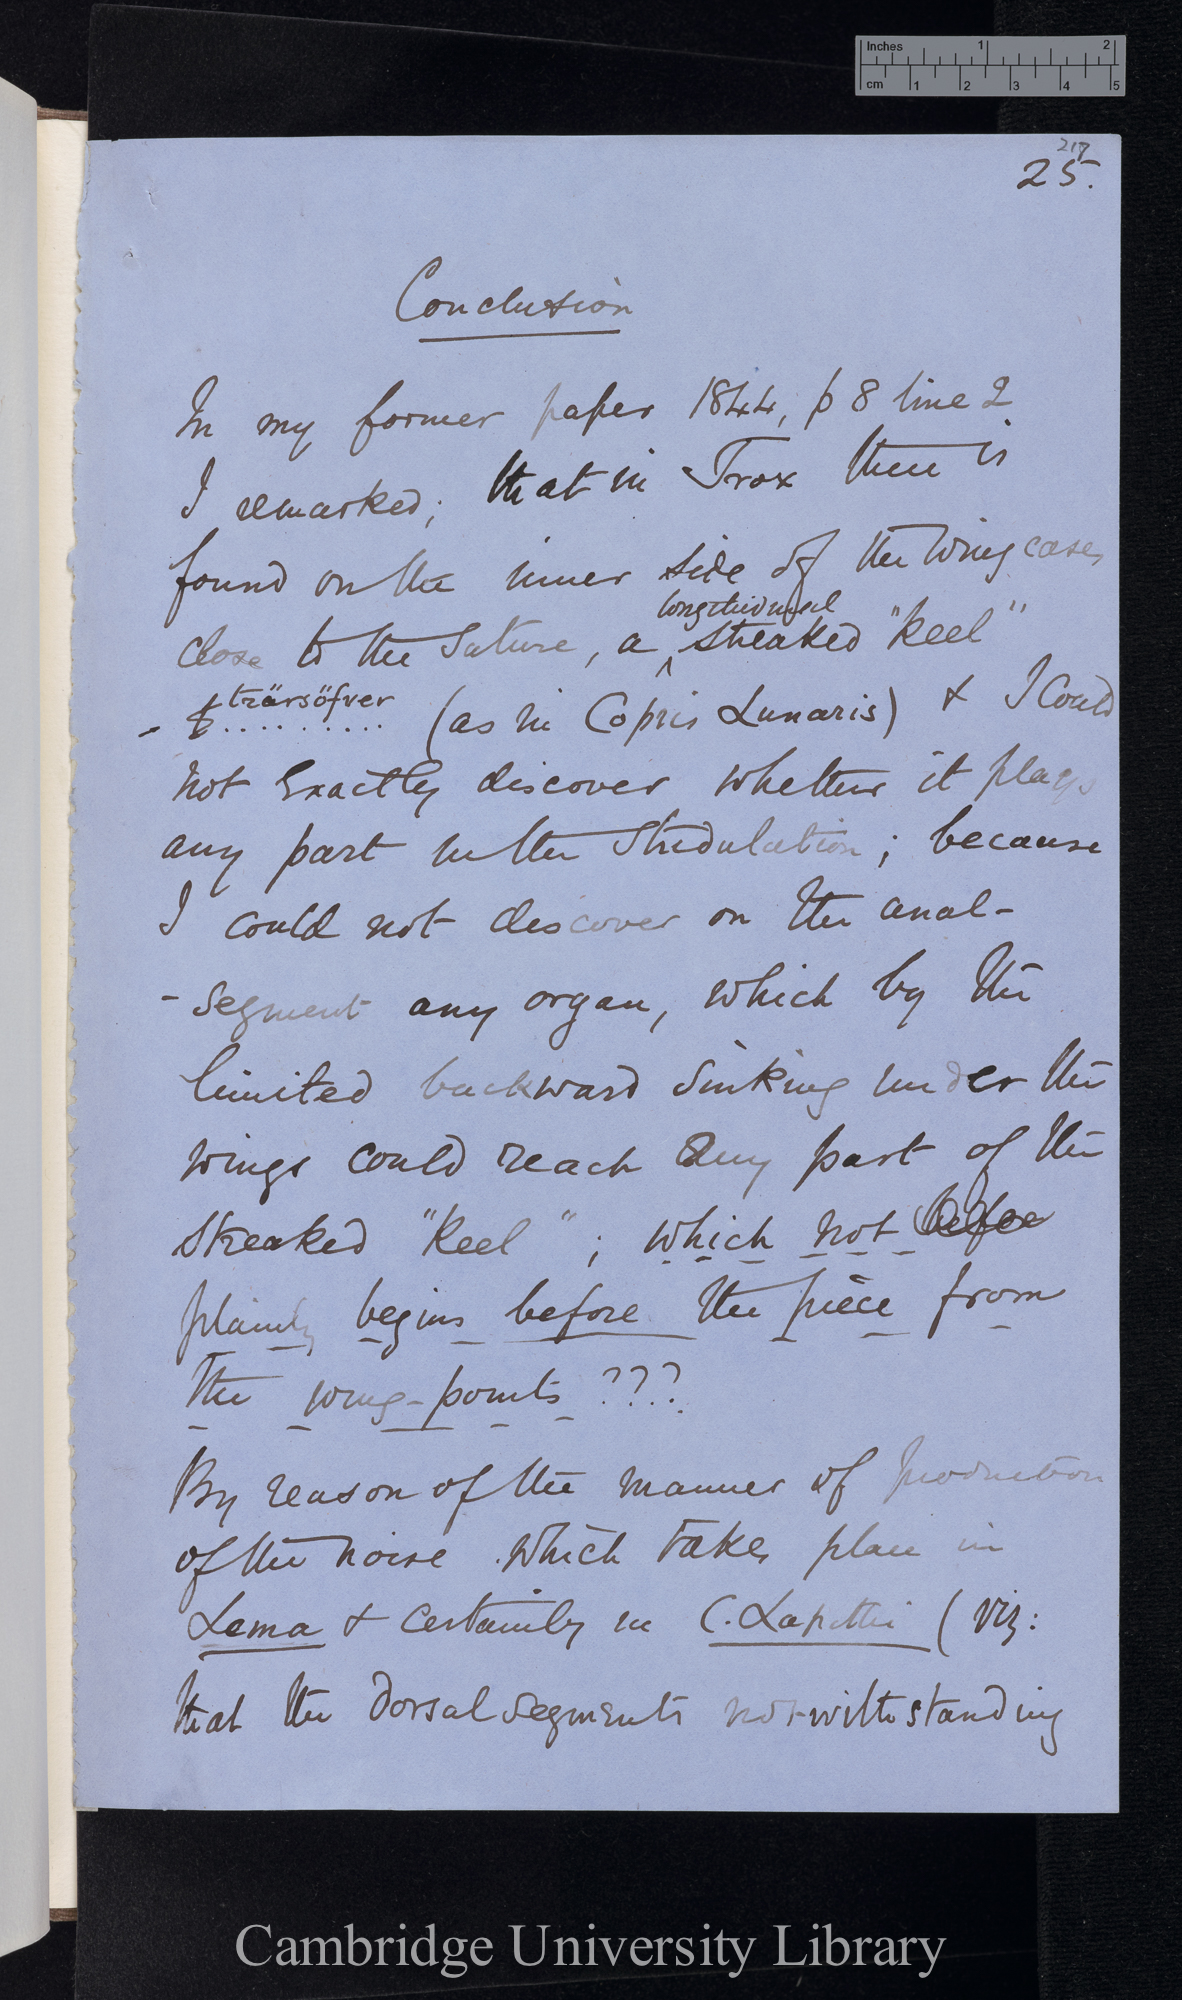 Inches 1 2
cm 1 2 3 4 5
217
25.
Conclusion
In my former paper 1844, p 8 line 2
I remarked; that in Trox there is
found on the inner side of the wing cases
longitudinal
close to the Suture, a ^ streaked "keel"
trärsöfver
- (as in Copris Lunaris) & I could
not exactly discover whether it plays
any part in the Stridulation; because
I could not discover on the anal-
-segment any organ, which by the
limited backward sinking under the
wings could reach any part of the
streaked "keel"; which not before
plainly begins before the piece from
the wing-points ???
By reason of the manner of production
of the noise which takes place in
Lema & certainly in C. Lapathi (viz:
that the dorsal segments not-withstanding
Cambridge University Library